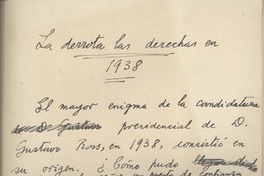 La derrota las derechas en
1938
El mayor enigma de la candidatura
de D. Gustavo presidencial de D.
Gustavo Ross, en 1938, consistió en
su origen. ¿Cómo pudo
de confianza